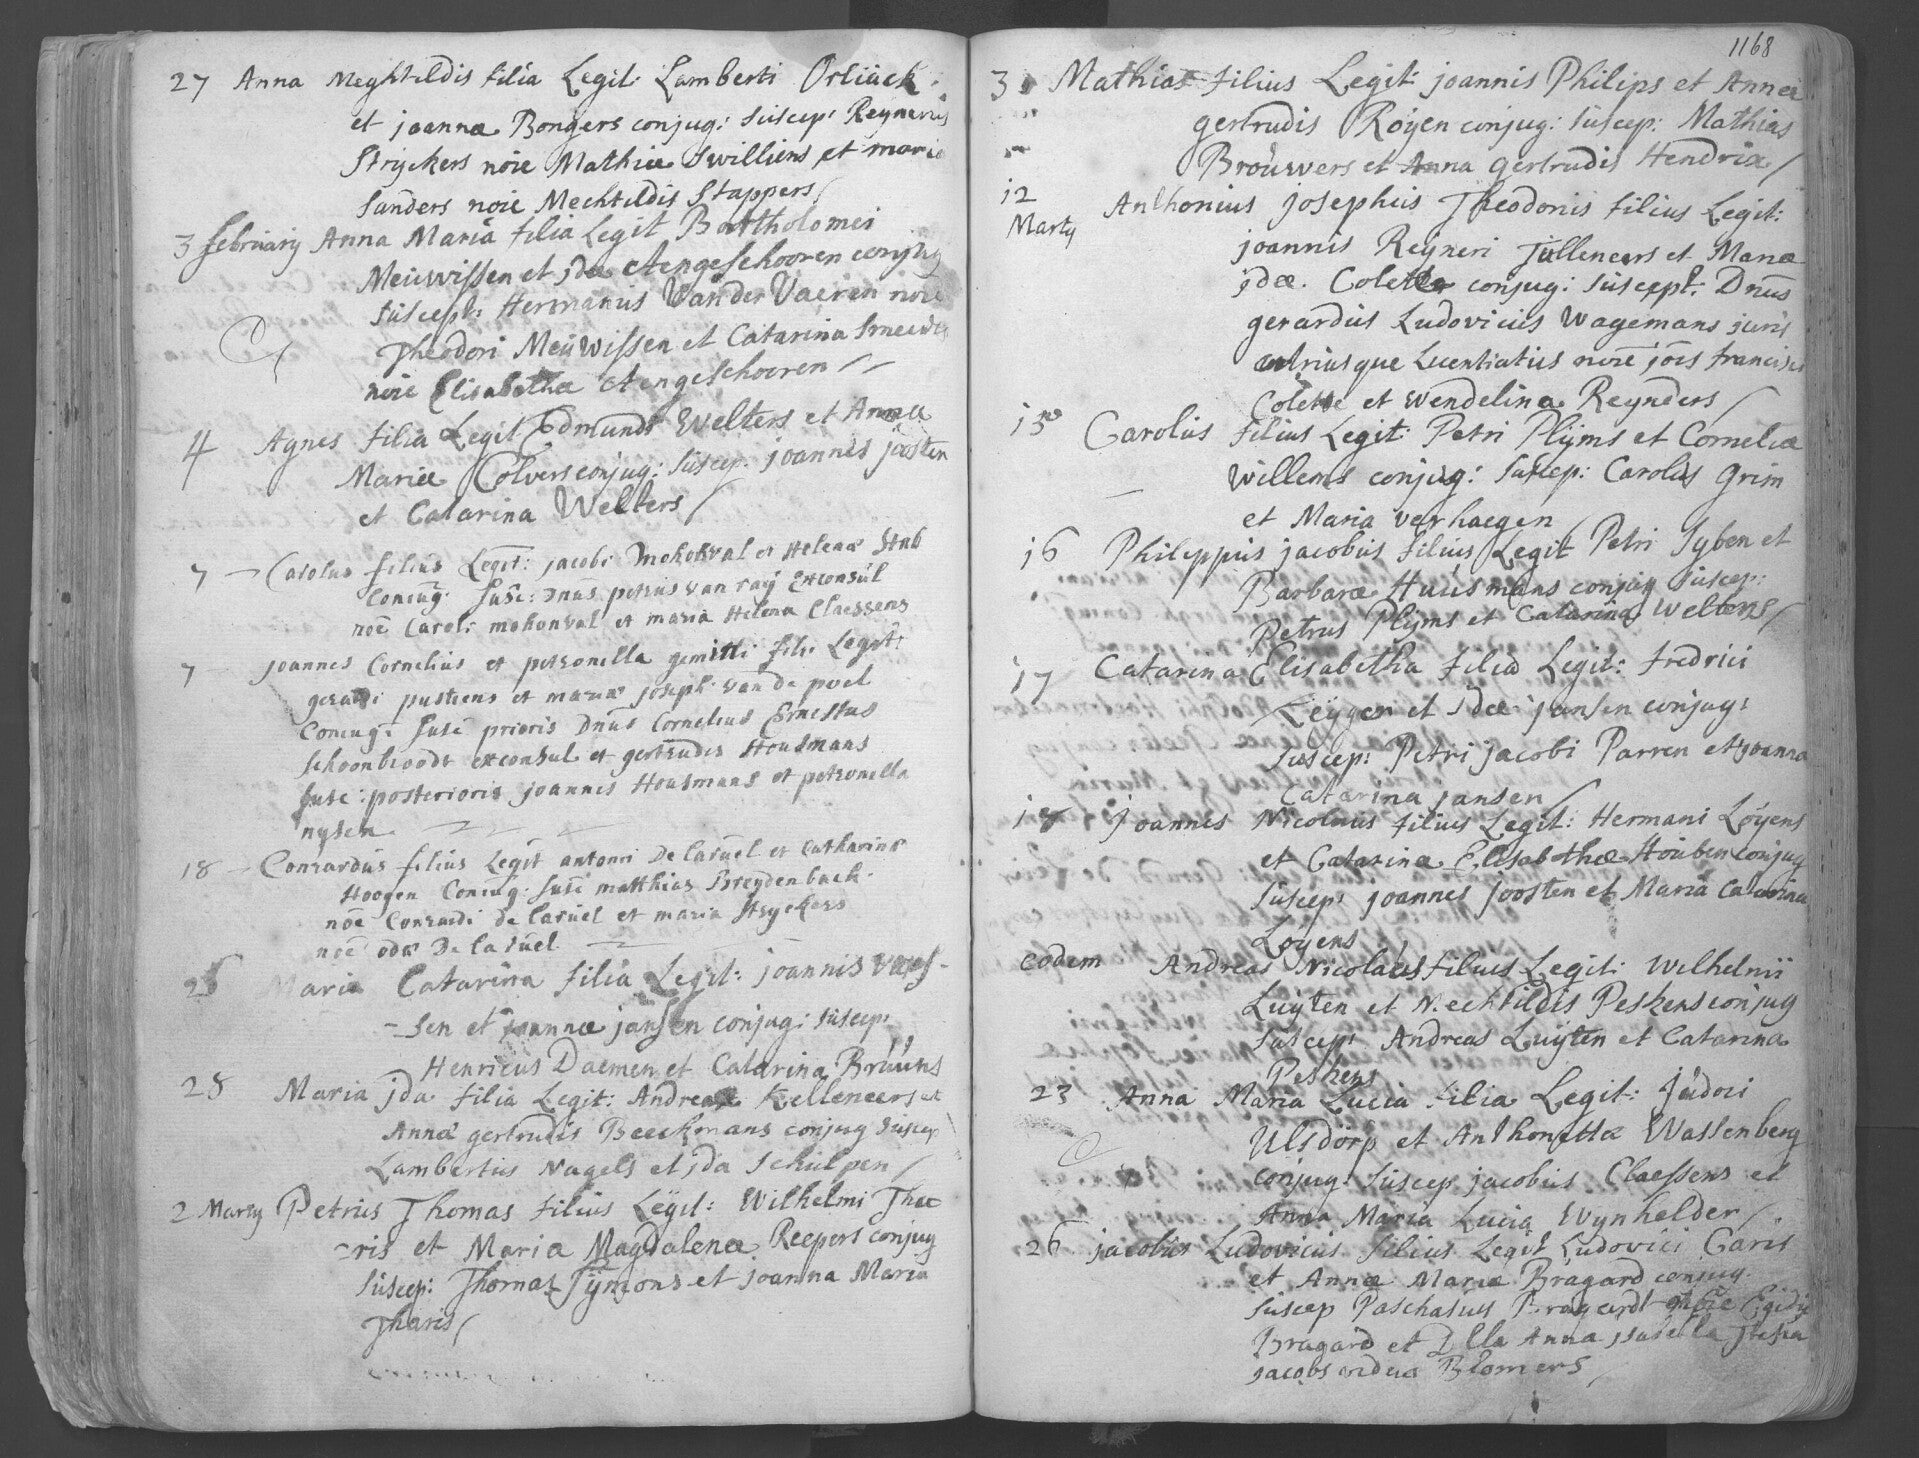 27 Anna Meghtildis filia Legit: Lamberti Orliack
et joannæ Bongers conjug: suscep: Reynerus
Stryckers noie Mathiæ Swilliens et maria
Sanders noie Mechtildis Stappers
3 february Anna Maria filia Legit Bartholomei
Meuwissen et jdæ Aengeschooren conjug
suscept: Hermanus Van der Vaeren noie
Theodori Meuwissen et Catarina
noie Elisabethæ Aengeschooren
4 Agnes filia Legit Edmundi Welters et Annæ
Mariæ Colvers conjug: suscep: joannes joosten
et Catarina Welters
7 Carolus filius Legit: jacobi mohonval et Helenæ
Coniug: susc: Dnus petrus van ray Exconsul
noe Caroli mohonval et maria Helena Claessens
7 joannes Cornelius et petronella gemelli filii Legit:
gerardi pustiens et mariæ joseph: van de poel
Coniug: susc prioris Dnus Cornelius Ernestus
schoonbroodt exconsul et gertrudis Housmans
susc: posterioris joannes Housmans et petronella
nysen
18 Conrardus filius Legit antonii De laruel et Catharinæ
Hoogen Coniug: susc matthias Breydenbach
noe Conrardi de laruel et maria stryckers
noe odæ De laruel
26 Maria Catarina filia Legit: joannis Vaes-
-sen et joannæ jansen conjug: suscep:
Henricus Daemen et Catarina Bruuns
28 Maria jda filia Legit: Andreæ Kelleneers et
Annæ gertrudis Beeckmans conjug suscep
Lambertus Nagels et jda Schulpen
2 Marty Petrus Thomas filius Legit: Wilhelmi Tha
-ris et Mariæ Magdalenæ Reepers conjug
suscep: Thomas Tymons et joanna Maria
Tharis
1168
3 Mathias filius Legit: joannis Philips et Annæ
gertrudis Royen conjug: suscep: Mathias
Brouwers et Anna gertrudis Hendrix
12 Marty Anthonius josephus Theodorus filius Legit:
joannis Reyneri Julleneers et Mariæ
jdæ Colette conjug: suscept: Dnus
gerardus Ludovicus Wagemans juris
utriusque Licentiatus noie jois francisci
Colette et Wendelina Reynders
13 Carolus filius Legit: Petri Plyms et Corneliæ
Willems conjug: suscep: Carolus Grim
et Maria verhaegen
16 Philippus jacobus filius Legit Petri Syben et
Barbaræ Huusmans conjug suscep:
Petrus Plyms et Catarina Weltens
17 Catarina Elisabetha filia Legit: fredrici
Keyger et jdæ jansen conjug:
suscep: Petri jacobi Parren et joanna
Catarina jansen
18 joannes Nicolaus filius Legit: Hermani Loyens
et Catarinæ Elisabethæ Houben conjug
suscep: joannes joosten et Maria Catarina
Loyens
eodem Andreas Nicolaus filius Legit: Wilhelmi
Luyten et Mechtildis Peskens conjug
suscep: Andreas Luyten et Catarina
Peskens
23 Anna Maria Lucia filia Legit: judoci
Ulsdorp et Anthonettæ Wassenberg
conjug: suscep jacobus Claessens et
Anna Maria Lucia Wynhelder
26 jacobus Ludovicus filius Legit Ludovici Garis
et Annæ Mariæ Bragard conjug:
suscep Paschasius Bragard noie Egidy
Bragard et Dlla Anna jsabella
jacobs vidua Blomers